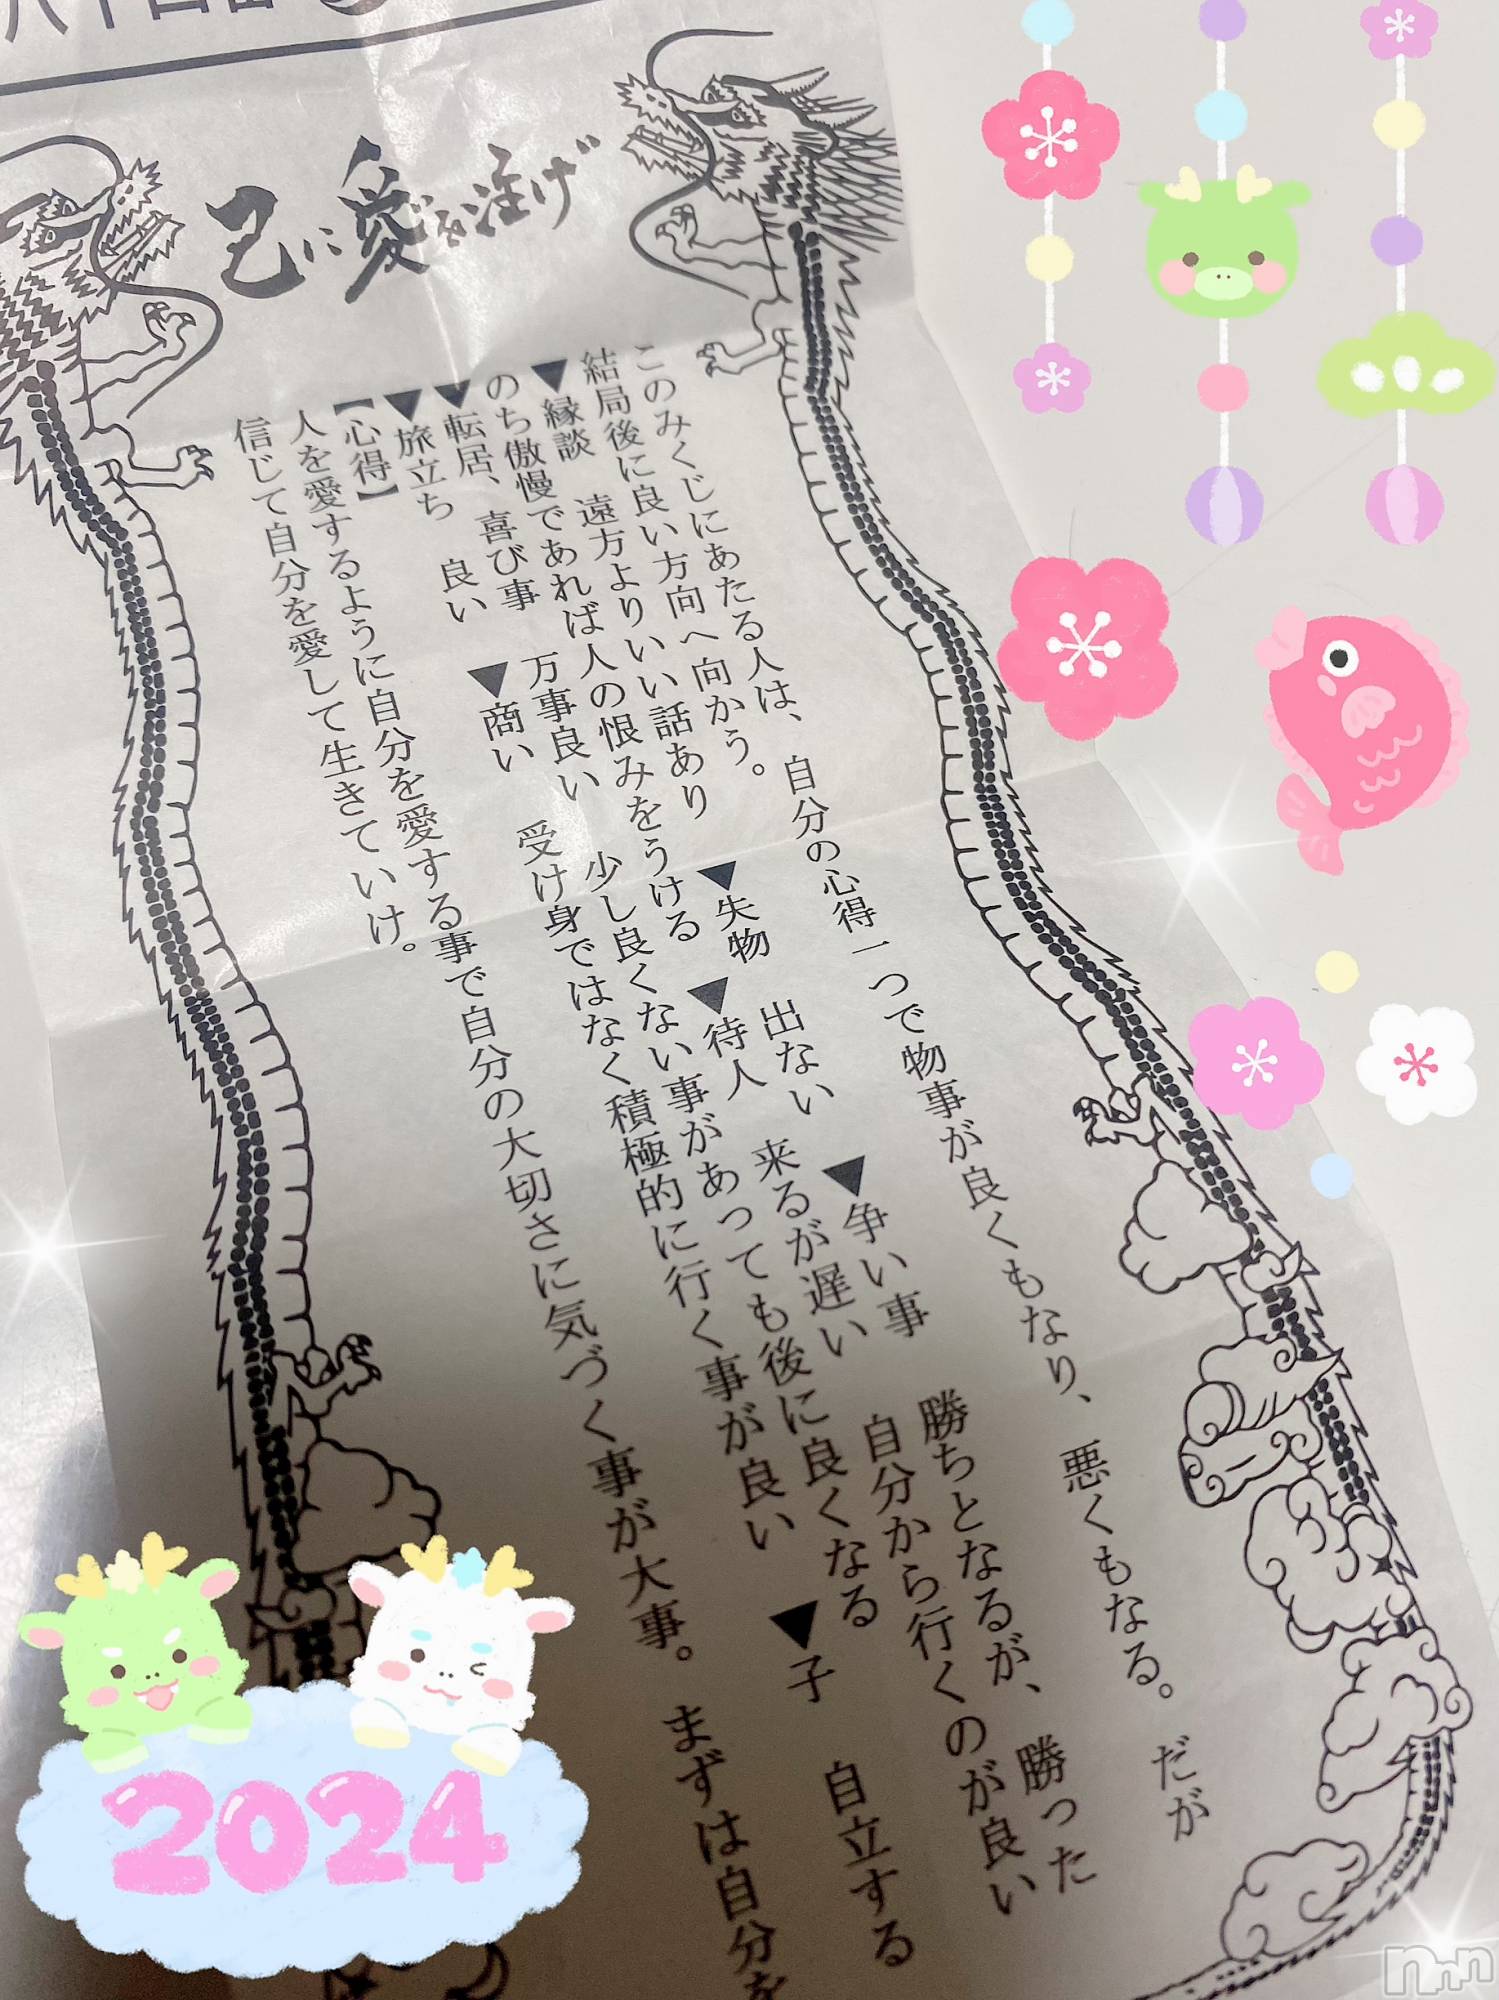 八十四番
己に愛を注げ
このみくじにあたる人は、自分の心得一つで物事が良くもなり、悪くもなる。だが
結局後に良い方向へ向かう。
▼縁談 遠方よりいい話あり ▼失物 出ない ▼争い事 勝ちとなるが、勝った
のち傲慢であれば人の恨みをうける ▼待人 来るが遅い 自分から行くのが良い
▼転居、喜び事 万事良い 少し良くない事があっても後に良くなる ▼子 自立する
▼旅立ち 良い ▼商い 受け身ではなく積極的に行く事が良い
【心得】
人を愛するように自分を愛する事で自分の大切さに気づく事が大事。まずは自分を
信じて自分を愛して生きていけ。
2024
nnn